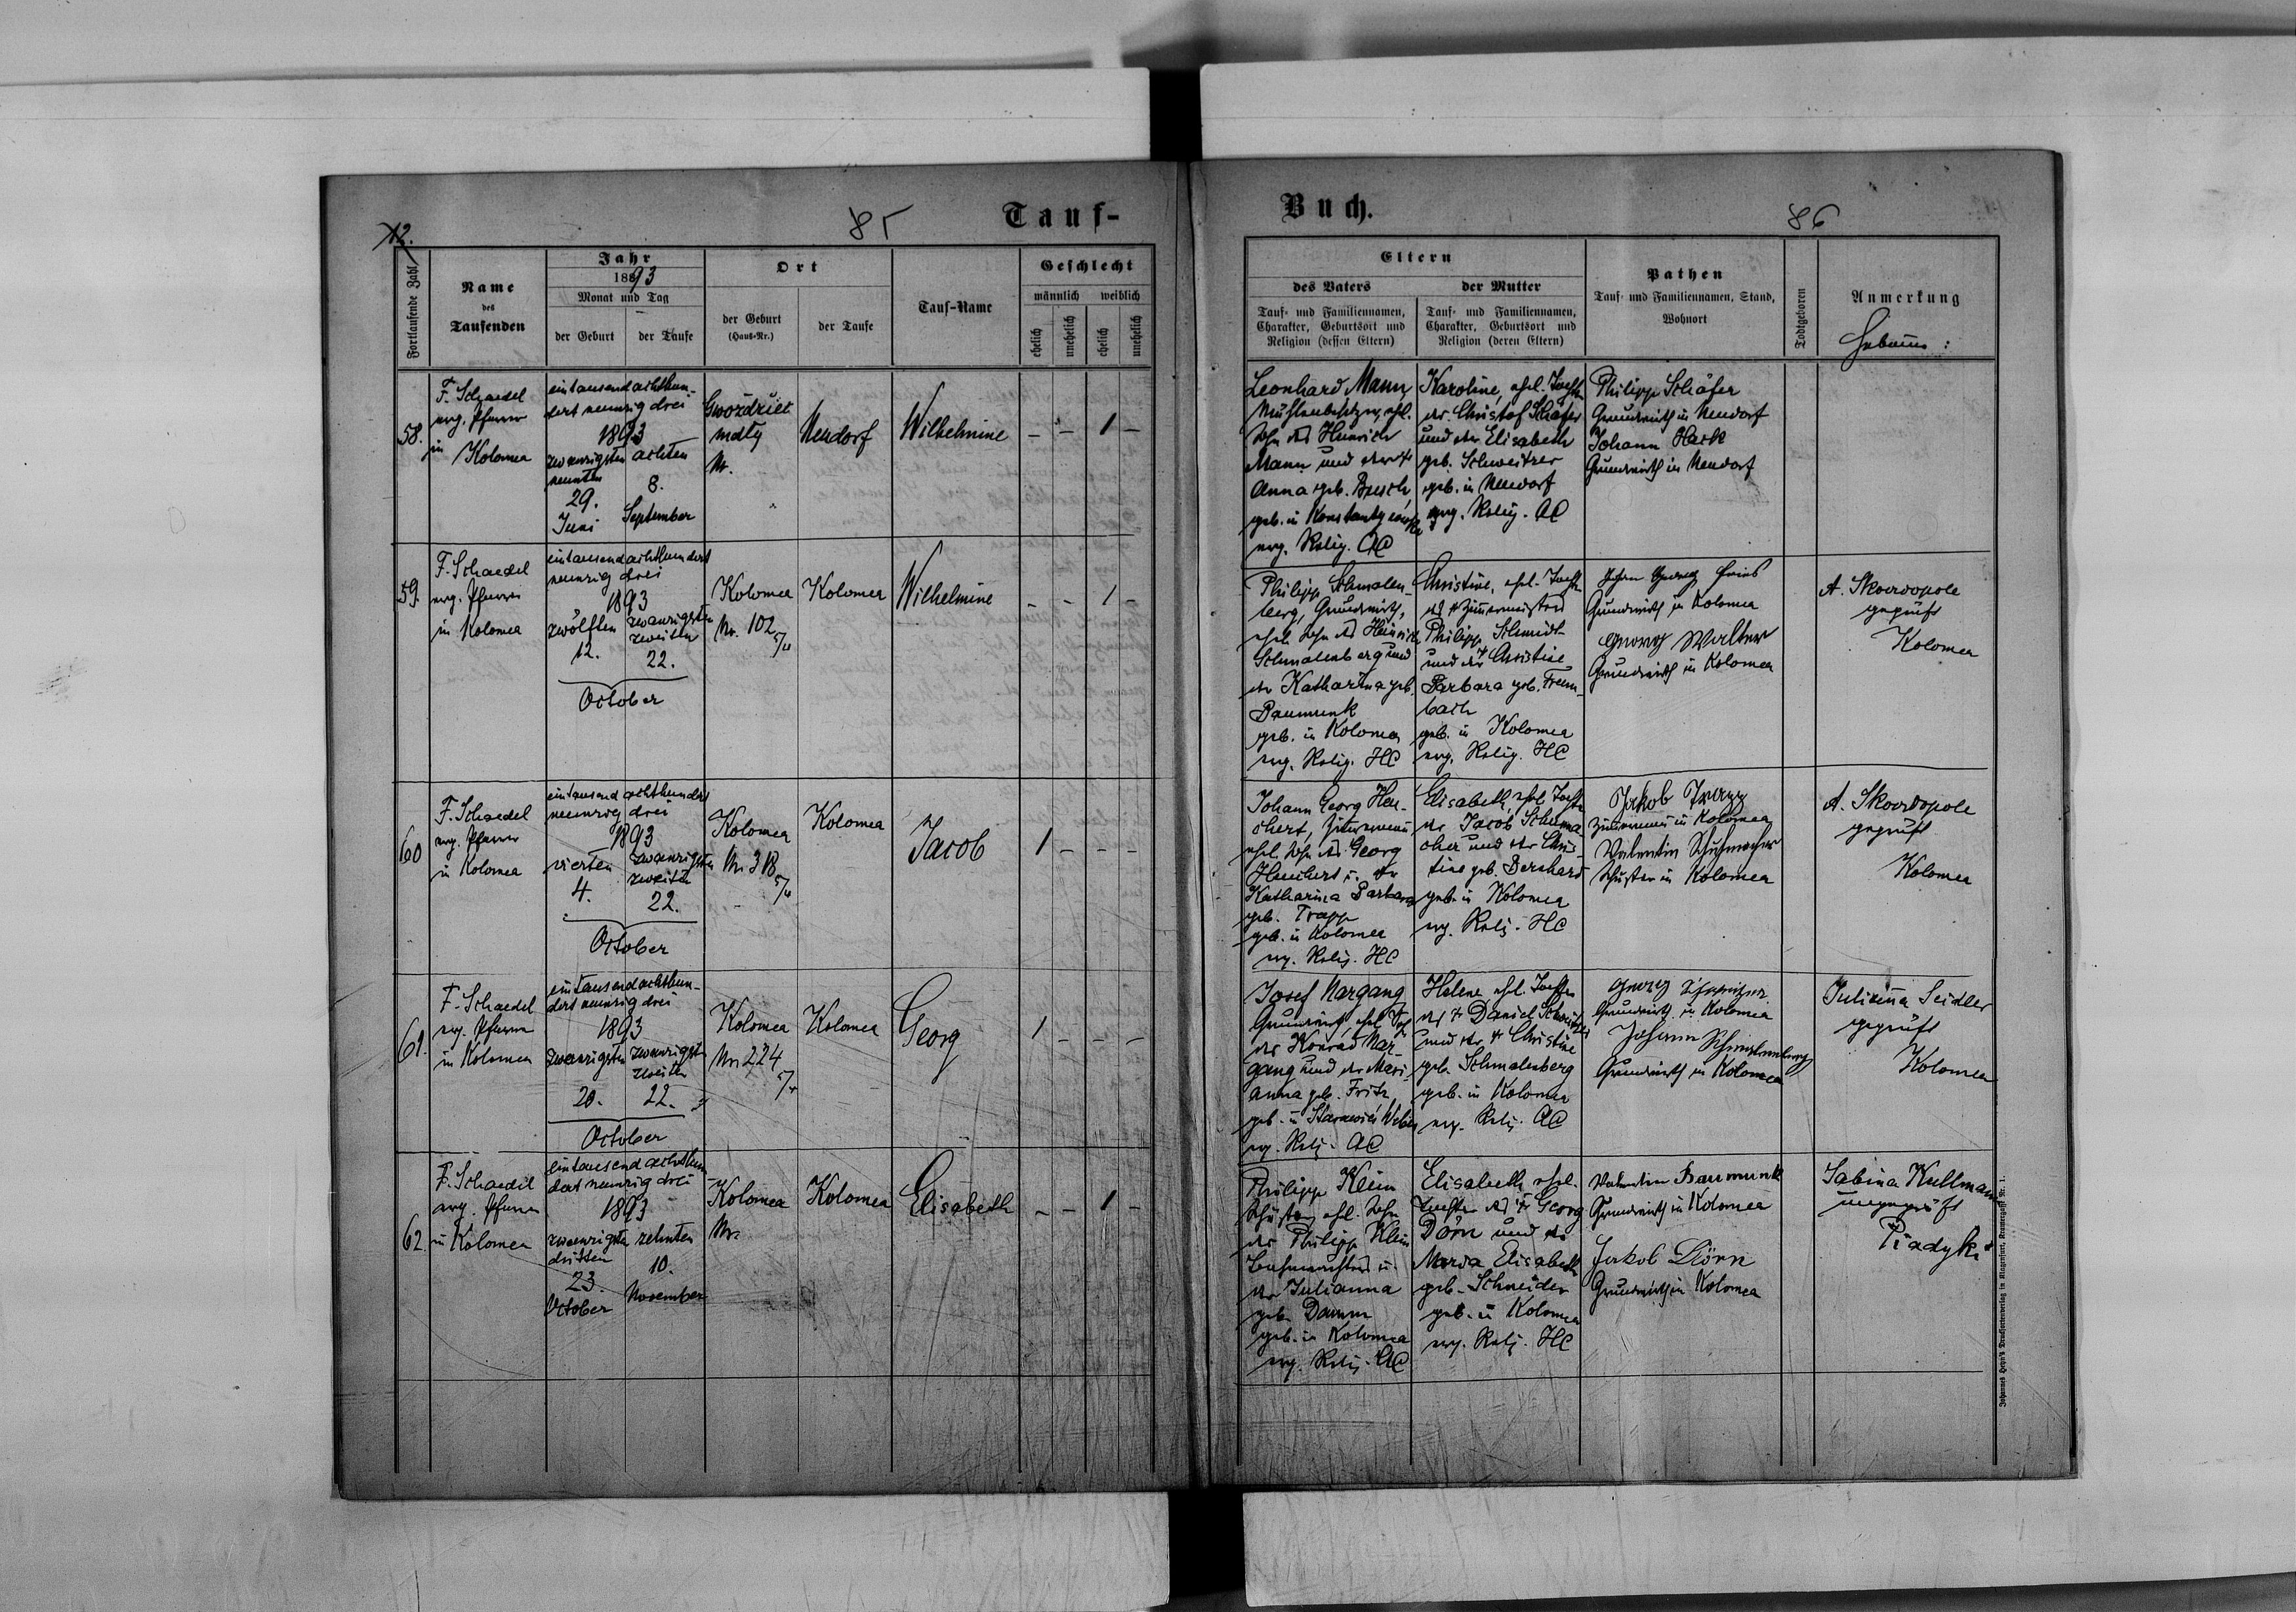 12.
85
Tauf-
Fortlaufende Zahl
Name
des
Taufenden
Jahr
1893
Monat und Tag
der Geburt
der Taufe
Ort
der Geburt
(Haus-Nr.)
der Taufe
Tauf-Name
Geschlecht
männlich
weiblich
ehelich
unehelich
ehelich
unehelich
58.
F. Schaedel
evg. Pfarrer
in Kolomea
eintausendachthun-
dert neunzig drei
1893
zwanzigsten
neunten
29.
Juni
achten
8.
September
Gwoździec
Nr.
Neudorf
Wilhelmine
– – 1 –
59.
F. Schaedel
evg. Pfarrer
in Kolomea
eintausendachthundert
neunzig drei
1893
zwölften
12.
zwanzigsten
zweiten
22.
October
Kolomea
Nr. 102
Kolomea
Wilhelmine
– – 1 –
60
F. Schaedel
evg. Pfarrer
in Kolomea
eintausend achthundert
neunzig drei
1893
vierten
4.
zwanzigsten
zweiten
22.
October
Kolomea
Nr. 318
Kolomea
Jacob
1 – – –
61.
F. Schaedel
evg. Pfarrer
in Kolomea
eintausendachthun-
dert neunzig drei
1893
zwanzigsten
20.
zwanzigsten
zweiten
22.
October
Kolomea
Nr. 224
Kolomea
Georg
1 – – –
62.
F. Schaedel
evg. Pfarrer
in Kolomea
eintausendachthun-
dert neunzig drei
1893
zwanzigsten
dritten
23.
October
zehnten
10.
November
Kolomea
Nr.
Kolomea
Elisabeth
– – 1 –
Buch.
86
Eltern
des Vaters
Tauf- und Familiennamen,
Charakter, Geburtsort und
Religion (dessen Eltern)
der Mutter
Tauf- und Familiennamen,
Charakter, Geburtsort und
Religion (deren Eltern)
Pathen
Tauf- und Familiennamen, Stand,
Wohnort
Todtgeboren
Anmerkung
Hebamme:
Leonhard Mann,
Mühlenbesitzer, ehl.
Sohn des Heinrich
Mann und der †
Anna geb. Busch,
geb. in
evg. Relig. AC
Karoline, ehel. Tochter
des Christof Schäfer
und der Elisabeth
geb. Schweitzer
geb. in Neudorf
evg. Relig. AC
Philipp Schäfer
Grundwirth in Neudorf
Johann
Grundwirth in Neudorf
Philipp Schmalen-
berg, Grundwirth,
ehel. Sohn des Heinrich
Schmalenberg und
der Katharina geb.
Baumunk
geb. in Kolomea
evg. Relig. HC
Christine, ehel. Tochter
des † Zimmermeisters
Philipp Schmidt
und der † Christine
Barbara geb.
bach
geb. in Kolomea
evg. Relig. HC
Georg
Grundwirth in Kolomea
Georg Walter
Grundwirth in Kolomea
A. Skowdopole
geprüft
Kolomea
Johann Georg Heu-
chert, Zimmermann,
ehel. Sohn des Georg
Heuchert u. der
Katharina Barbara
geb. Trapp
geb. in Kolomea
evg. Relig. HC
Elisabeth, ehel. Tochter
des Jacob Schuma-
cher und der Chris-
tine geb. Bernhard
geb. in Kolomea
evg. Relig. HC
Jakob Trapp
Zimmermann in Kolomea
Valentin Schuhmacher
Schuster in Kolomea
A. Skowdopole
geprüft
Kolomea
Josef Margang
Grundwirth, ehel. Sohn
des Konrad Mar-
gang und der Mari-
anna geb. Fritz,
geb. in
evg. Relig. AC
Helene ehel. Tochter
des † Daniel Schweitzer
und der † Christine
geb. Schmalenberg
geb. in Kolomea
evg. Relig. AC
Georg
Grundwirth in Kolomea
Johann Schmalenberg
Grundwirth in Kolomea
Juliana Seidler
geprüft
Kolomea
Philipp Klein
Schuster, ehl. Sohn
des Philipp Klein
u.
der Julianna
geb. Damm
geb. in Kolomea
evg. Relig. AC
Elisabeth ehel.
Tochter des † Georg
Dörn und der
Maria Elisabeth
geb. Schneider
geb. in Kolomea
evg. Relig. HC
Valentin Baumunk
Grundwirth in Kolomea
Jakob Dörn
Grundwirth in Kolomea
Sabina Kullmann
ungeprüft
Piadyki